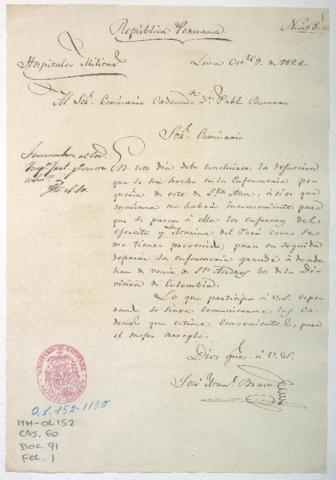 República Peruana
Hospitales Militares
Lima Oct.e 9. de 1826.
Al Sor. Comisario Ordenad.r Dn. Pablo Romero
Sor. Comisario
En este dia debe concluirse la refaccion
que se há hecho en la enfermeria pe-
queña de este de Sta. Ana; á si es que
mañana no habrá inconveniente para
que se pasen á ella los enfermos del
Exercito y Marina del Perú como se
me tiene prevenido, para en seguida
desocupar la enfermeria grande á donde
han de venir de Sn. Andres los de la di-
vision de Colombia.
Lo que participo á V.S. espe-
rando se sirva comunicarme las or-
denes que estime convenientes, para
el mejor acierto.
Dios gue. á V.S.
José Bravo
O.L. 152-1150
MH-OL152
CAJ. 60
DOC. 91
FOL. 1